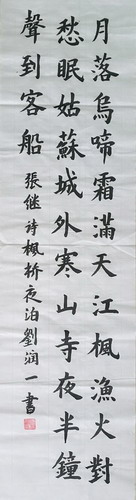 月落烏啼霜滿天江楓漁火對
愁眠姑蘇城外寒山寺夜半鐘
聲到客船
張继诗楓桥夜泊劉润一書